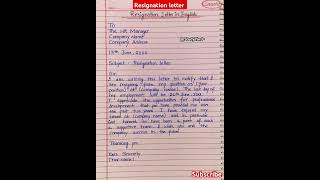 Resignation letter
Resignation Letter In English
To
The HR Manager
Company Name
Company Address
13th June,
Subject - Resignation letter
Sir,
I am writing this letter to notify that I
am resigning from my position as (your
position) at (company name). The last day of
my employment will be 26th June,
I appreciate the opportunities for professional
development that you have provided me over
the past two years. I have enjoyed my
tenure at (company name) and in particular
feel honored to have been a part of such
a supportive team. I wish you and the
company success in the future.
Thanking you
Yours Sincerely
(Your name)
Subscribe